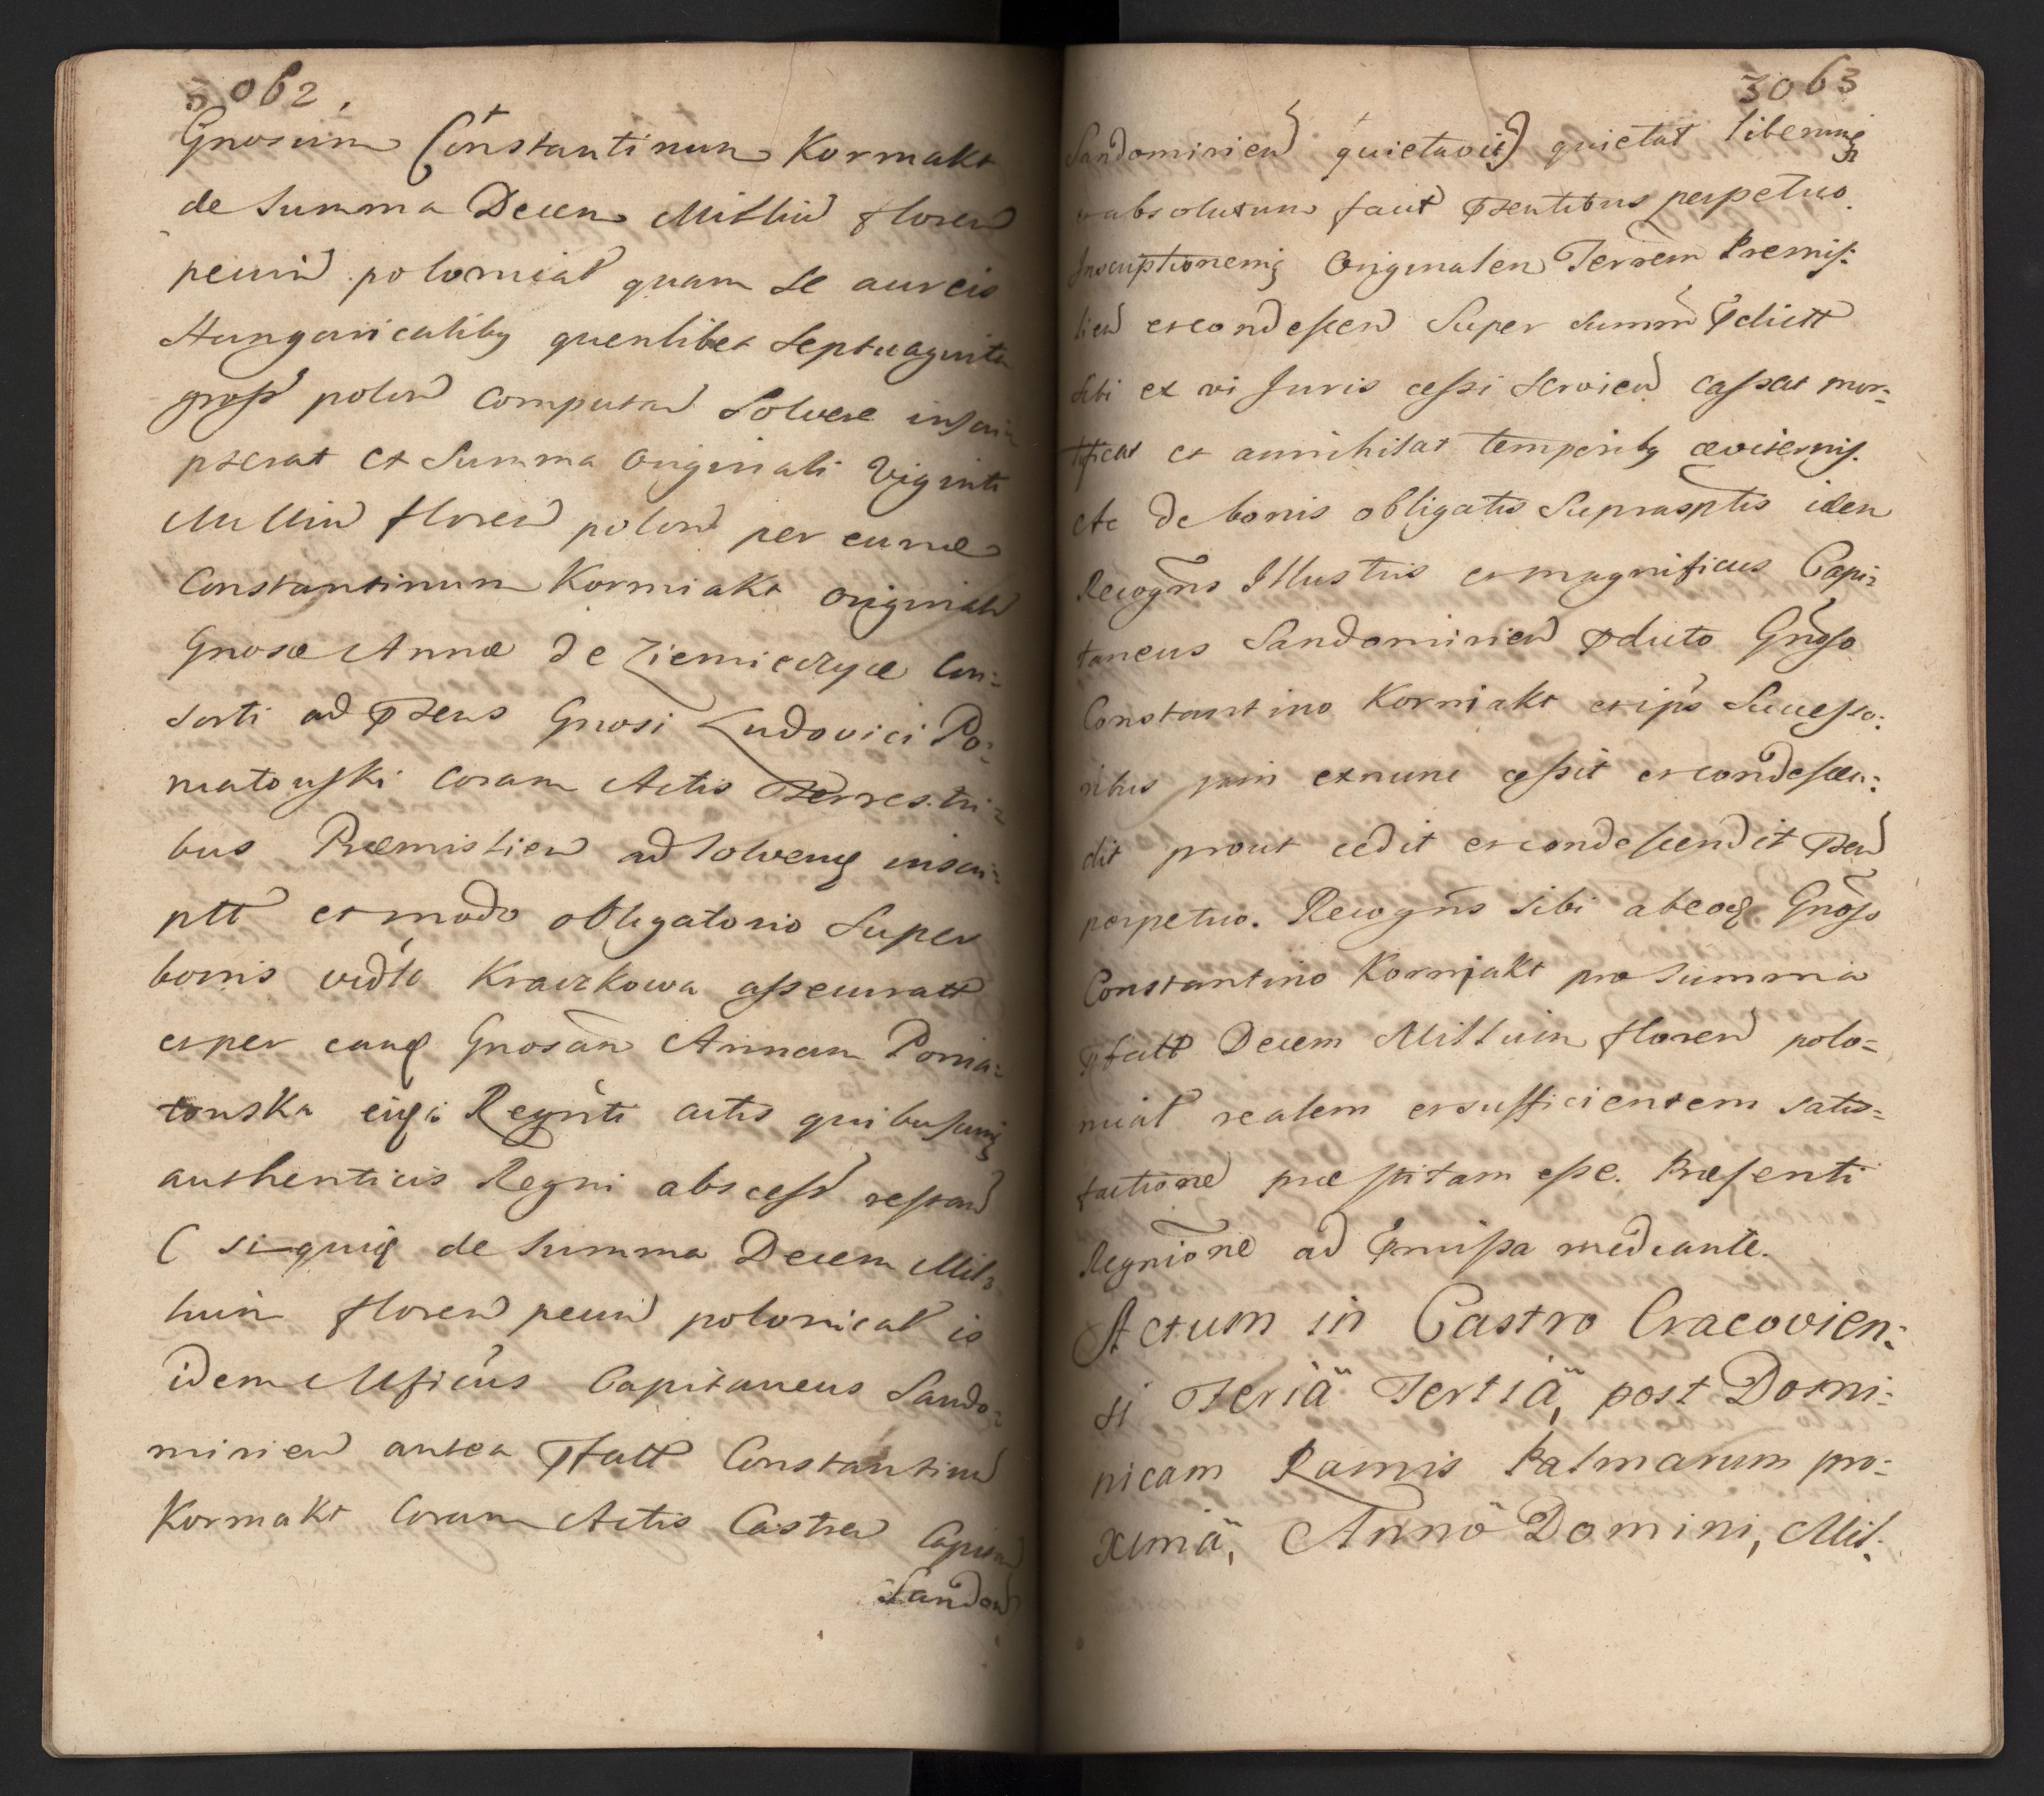 3062.
Gnosum Constantinum Korniakt
de Summa Decem Milliu floren
pecun polonical quam se aureis
Hungaricaliby quemlibet Septuaginta
gross polon computan Solvere inscri
pserat et Summa Originali Viginti
Milliu floren polon per eund
Constantinum Korniakt original
Gnosæ Annæ de Ziemieczyce Con:
sorti ad Pzens Gnosi Ludovici Po:
niatowski Coram Actis Terrestri:
bus Præmislien ad Solvend inscri:
ptt et modo obligatorio Super
bonis vidto Kraczkowa assecuratt
et per eand Gnosam Annam Ponia:
towska eidi Regnti actis quibuscunq
authenticis Regni abscess restan
( siquid de Summa Decem Mil:
lium floren pecun polonical is
idem Mficus Capitaneus Sando:
mirien antea Pfatt Constantinu
Korniakt Coram Actis Castren Capitan
Sandom
3063
Sandomirien quietavit) quietat liberumq
absolutum facit Pzentibus perpetuo.
Inscriptionemq Originalem Terrem Premis:
lien et condescen Super Summ Pdictt
sibi ex vi Juris cessi Servien cassat mor:
tificat et annihilat temporiby æviternis.
Ac de bonis obligatis Suprasptis idem
Recogns Illustris et magnificus Capi:
taneus Sandomirien Pdicto Gnoso
Constantino Korniakt et ips Successo:
ribus jam exnunc cessit et condescen:
dit prout cedit et condescendit Pzen
perpetuo. Recogns sibi ab eod Gnoso
Constantino Korniakt pro Summa
Pfatt Decem Millium floren polo=
nical realem et sufficientem satis=
factione præstitam esse. Præsenti
Regnione ad Pmissa mediante.
Actum in Castro Cracovien:
si Feriâ Tertiâ, post Domi:
nicam Ramis Palmarum pro:
ximâ, Annô Domini, Mil: